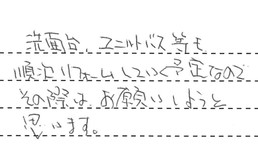 洗面台、ユニットバス等も
順次リフォームしていく予定なので
その際はお願いしようと
思います。